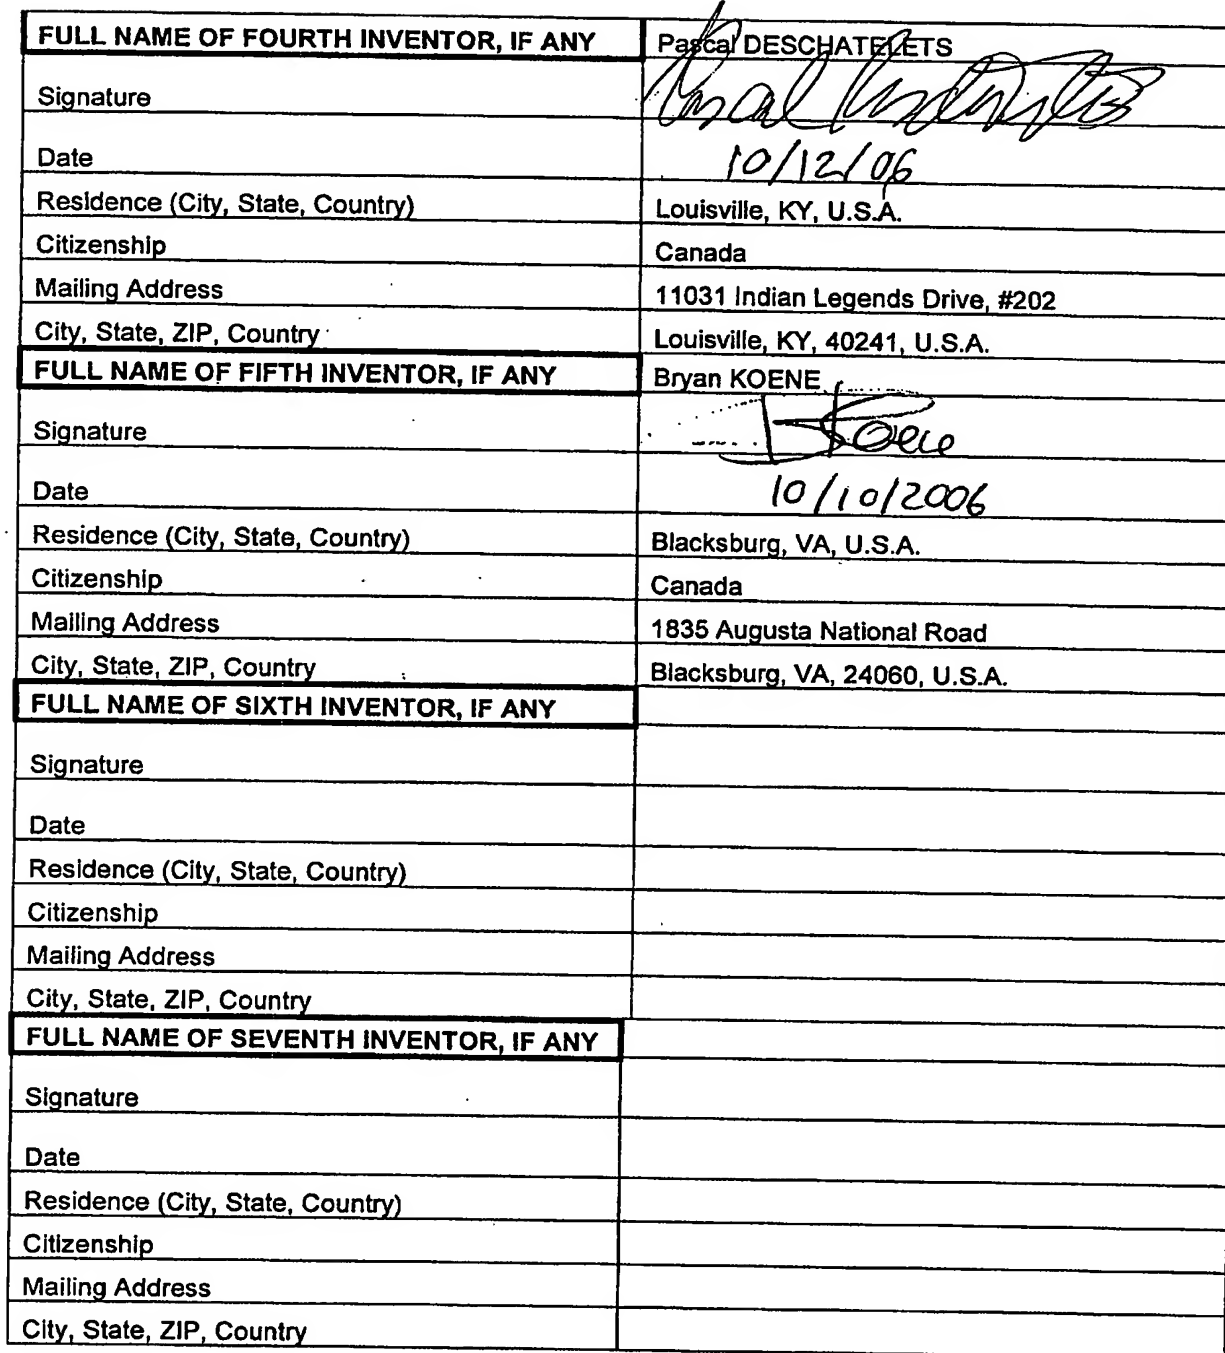 FULL NAME OF FOURTH INVENTOR, IF ANY Pascal DESCHATELETS
Signature
Date 10/12/06
Residence (City, State, Country) Louisville, KY, U.S.A.
Citizenship Canada
Mailing Address 11031 Indian Legends Drive, #202
City, State, ZIP, Country Louisville, KY, 40241, U.S.A.
FULL NAME OF FIFTH INVENTOR, IF ANY Bryan KOENE
Signature B Koene
Date 10/10/2006
Residence (City, State, Country) Blacksburg, VA, U.S.A.
Citizenship Canada
Mailing Address 1835 Augusta National Road
City, State, ZIP, Country Blacksburg, VA, 24060, U.S.A.
FULL NAME OF SIXTH INVENTOR, IF ANY
Signature
Date
Residence (City, State, Country)
Citizenship
Mailing Address
City, State, ZIP, Country
FULL NAME OF SEVENTH INVENTOR, IF ANY
Signature
Date
Residence (City, State, Country)
Citizenship
Mailing Address
City, State, ZIP, Country